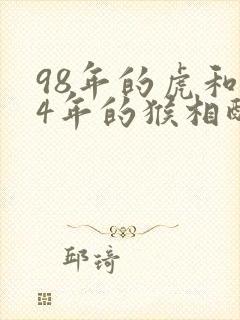 98年的虎和
4年的猴相配
邱琦